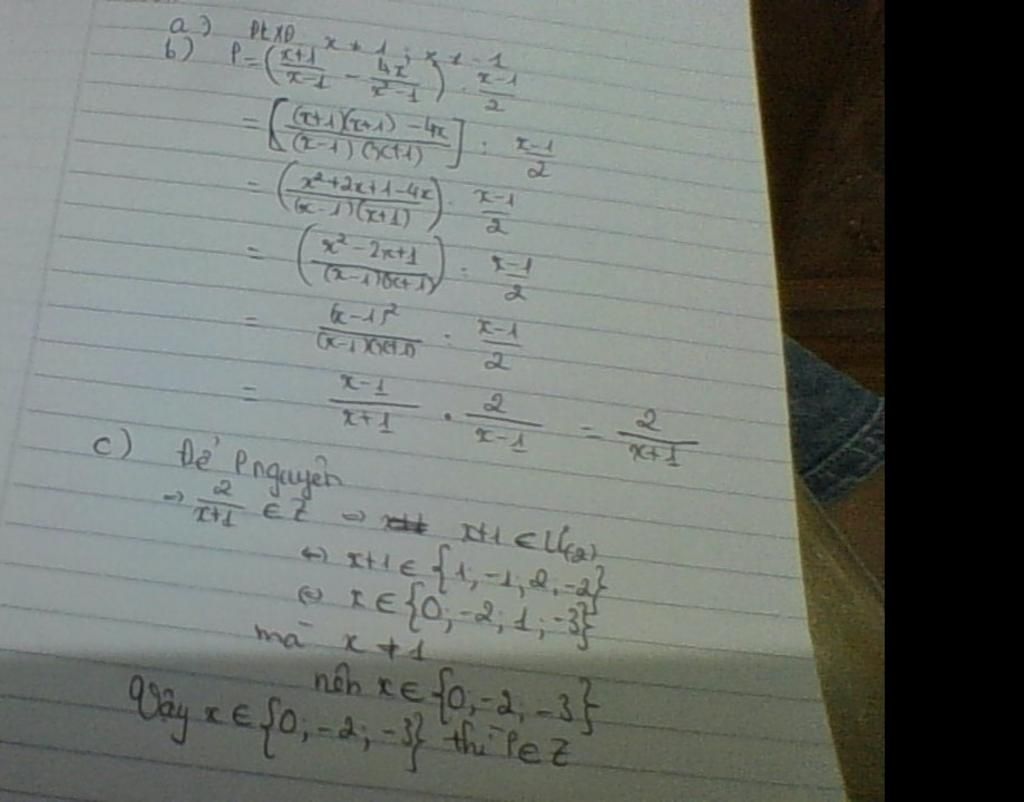 a) ĐKXĐ x ≠ 1 ; x ≠ -1
b) P = (x+1/x-1 - 4x/x²-1) : x-1/2
= [(x+1)(x+1) - 4x/(x-1)(x+1)] : x-1/2
= (x²+2x+1-4x/(x-1)(x+1)) : x-1/2
= (x²-2x+1/(x-1)(x+1)) : x-1/2
= (x-1)²/(x-1)(x+1) : x-1/2
= x-1/x+1 . 2/x-1 = 2/x+1
c) Để P nguyên
=> 2/x+1 ∈ Z => x+1 ∈ Ư(2)
<=> x+1 ∈ {1; -1; 2; -2}
<=> x ∈ {0; -2; 1; -3}
mà x ≠ 1
nên x ∈ {0; -2; -3}
Vậy x ∈ {0; -2; -3} thì P ∈ Z